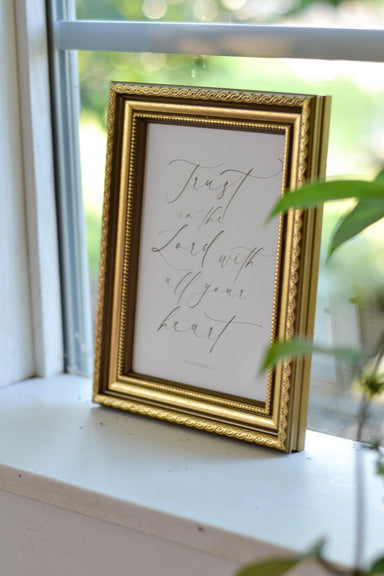 Trust
in the
Lord with
all your
heart
PROVERBS 3:5